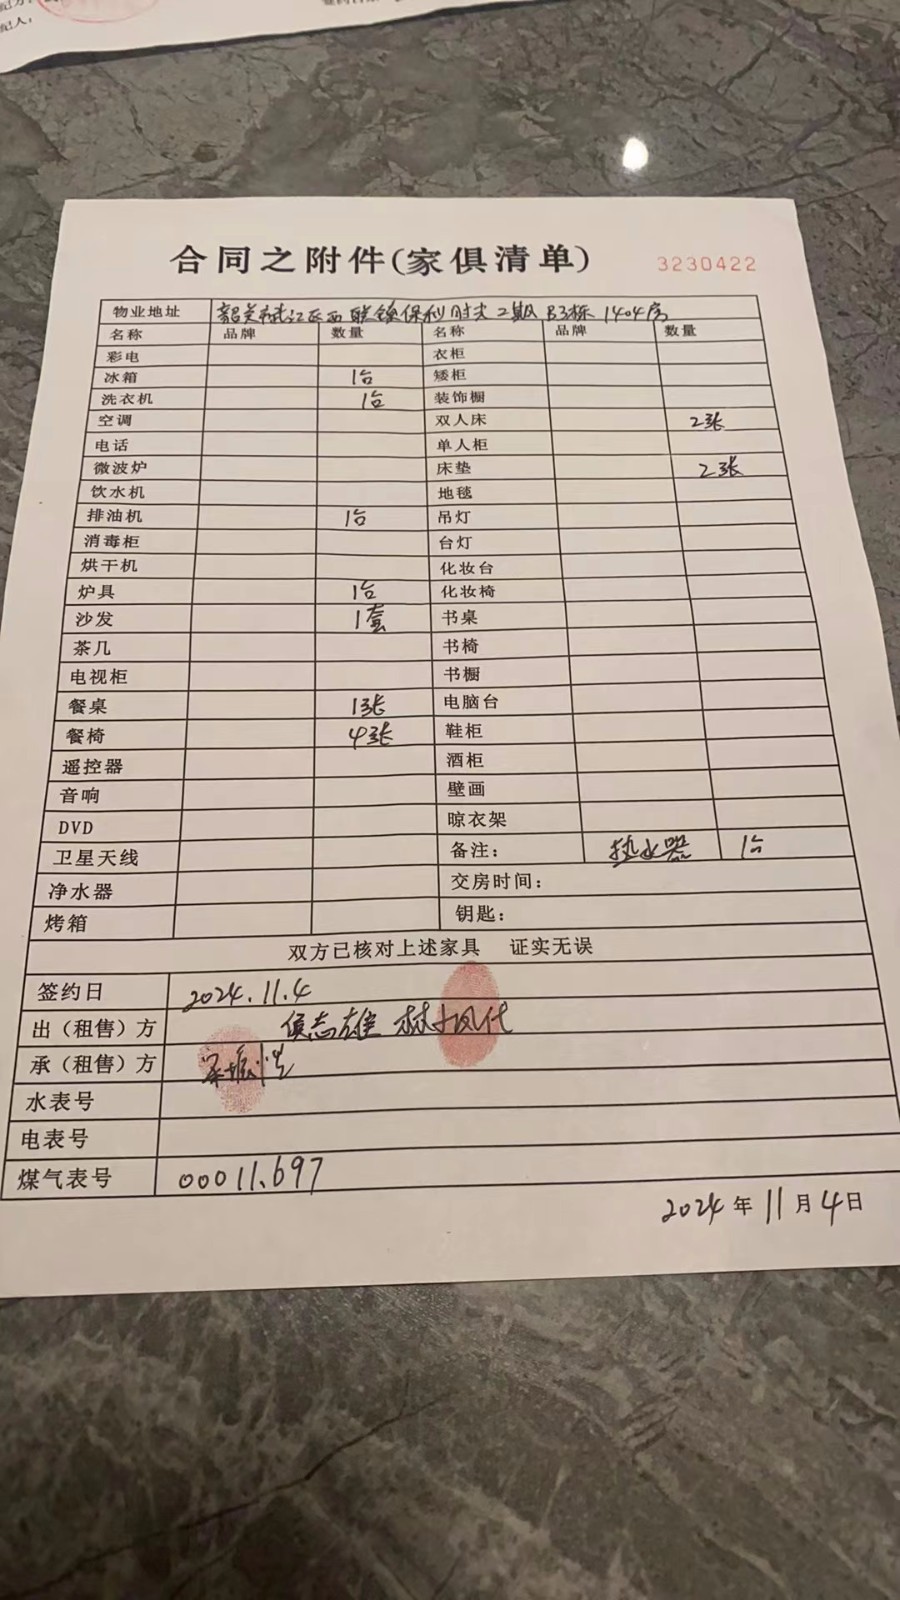 合同之附件(家俱清单) 3230422
物业地址 韶关市武江区西联镇保利时光2期B3栋1404房
名称 品牌 数量 名称 品牌 数量
彩电 衣柜
冰箱 1台 矮柜
洗衣机 1台 装饰橱
空调 双人床 2张
电话 单人柜
微波炉 床垫 2张
饮水机 地毯
排油机 1台 吊灯
消毒柜 台灯
烘干机 化妆台
炉具 1台 化妆椅
沙发 1套 书桌
茶几 书椅
电视柜 书橱
餐桌 1张 电脑台
餐椅 4张 鞋柜
遥控器 酒柜
音响 壁画
DVD 晾衣架
卫星天线 备注: 热水器 1台
净水器 交房时间:
烤箱 钥匙:
双方已核对上述家具 证实无误
签约日 2024.11.4
出（租售）方 代
承（租售）方
水表号
电表号
煤气表号 00011.697
2024年11月4日